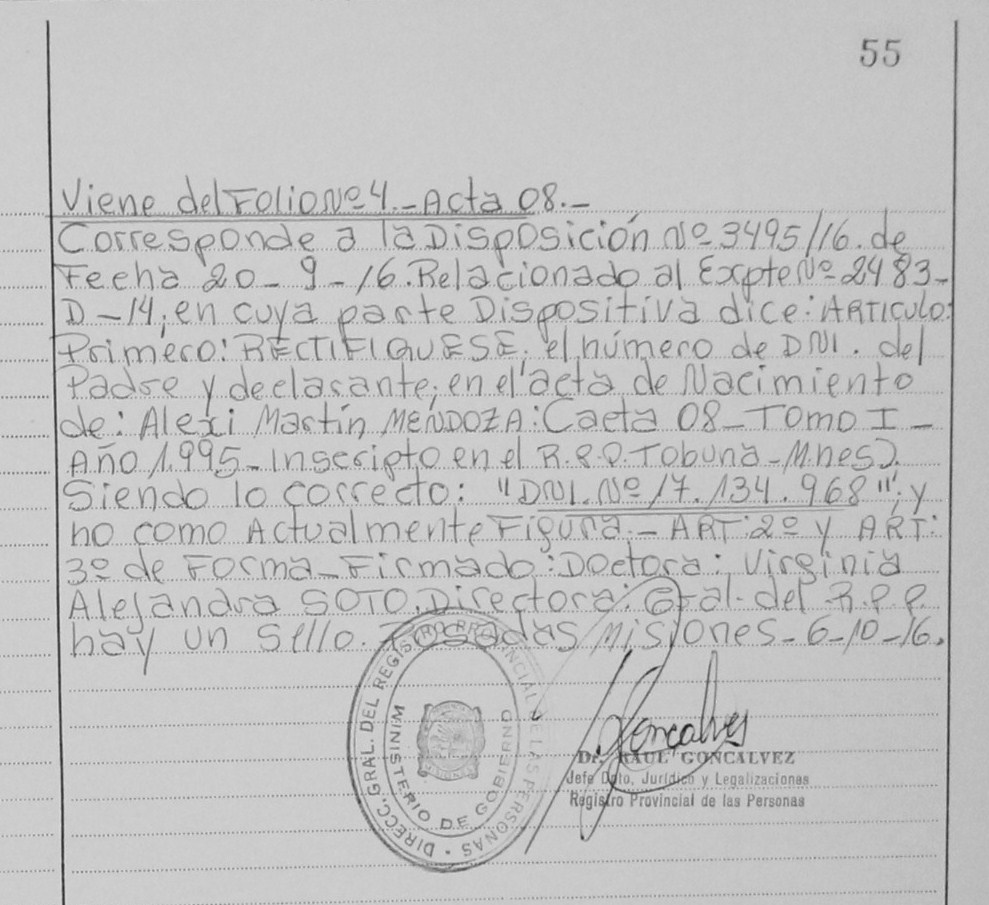 55
Viene del Folio Nº 4.-Acta 08.-
Corresponde a la Disposición Nº 3495/16. de
Fecha 20-9-16. Relacionado al Expte Nº 2483-
D-14, en cuya parte Dispositiva dice: ARTICULO:
Primero: RECTIFIQUESE, el número de DNI. del
Padre y declarante, en el acta de Nacimiento
de: Alexi Martín MENDOZA: Caeta 08-Tomo I-
Año 1.995-Inscripto en el R.P.P. Tobuna-Mnes).
Siendo lo correcto: "DNI. Nº 17.134.968", y
no como Actualmente Figura.-ART: 2º y ART:
3º de Forma-Firmado: Doctora: Virginia
Alejandra SOTO. Directora: Gral. del R.P.P.
hay un Sello. Posadas Misiones-6-10-16.
DIRECC. GRAL. DEL REGISTRO PROVINCIAL DE LAS PERSONAS
MINISTERIO DE GOBIERNO
Goncalves
Dr. RAUL GONCALVEZ
Jefe Dpto. Jurídico y Legalizaciones
Registro Provincial de las Personas